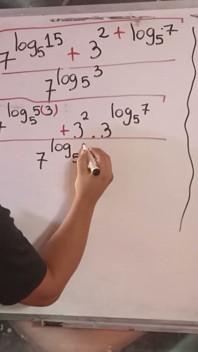 7^{log_5 15} + 3^{2 + log_5 7}
7^{log_5 3}
7^{log_5 5(3)} + 3^2 . 3^{log_5 7}
7^{log_5